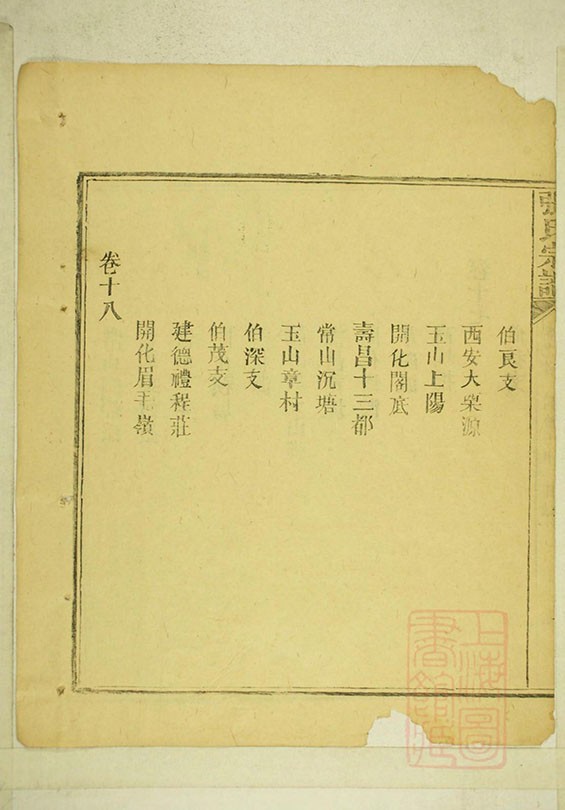 張氏宗譜
伯良支
西安大渠源
玉山上陽
開化閣底
壽昌十三都
常山沉塘
玉山章村
伯深支
伯茂支
建德禮程莊
開化眉毛嶺
卷十八
上海圖書館藏